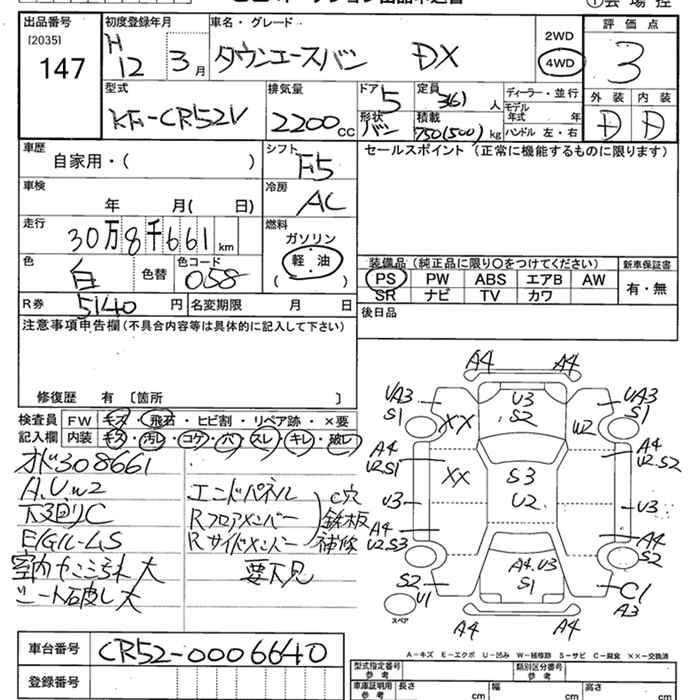 出品番号
[2035]
147
初度登録年月
H 12 年 3 月
車名・グレード
タウンエースバン DX
2WD
4WD
評価点
3
外装 内装
D D
型式
KE-CR52V
排気量
2200 cc
ドア 5
形状 バン
定員 3(6) 人
積載 750(500) kg
ディーラー・並行
モデル年式 年
ハンドル 左・右
車歴
自家用・( )
シフト
F5
セールスポイント (正常に機能するものに限ります)
車検
年 月( 日)
冷房
AC
走行
30万8千661 km
燃料
ガソリン
軽油
( )
色
白
色替
色コード
058
装備品 (純正品に限り○をつけてください)
新車保証書
PS PW ABS エアB AW
SR ナビ TV カワ
有・無
R券 5140 円
名変期限 月 日
後日品
注意事項申告欄(不具合内容等は具体的に記入して下さい)
修復歴 有 〔箇所 〕
検査員
記入欄
FW キズ・飛石・ヒビ割・リペア跡・×要
内装 キズ・汚レ・コゲ・穴・スレ・キレ・破レ
オド308661
A.U.W2
下回りC
E/Gイル-L.S
大
大
エンドパネル
Rフロアメンバー
Rサイドメンバー
C穴
鉄板
補修
要下見
A4 A4
UA3 S1
U3 S2
UA3 S1
XX
W2
A4 U2.S1
XX
S3 U2
A4 U2.S2
U3
U3
A4 U2.S3
A4 S2
S2 U1
A4.U3 S1
C1 A3
A4 A4
スペア
A-キズ E-エクボ U-凹み W-補修跡 S-サビ C-腐食 XX-交換済
車台番号
CR52-0006640
登録番号
型式指定番号 参考
類別区分番号 参考
車庫証明用 参考
長さ cm
幅 cm
高さ cm